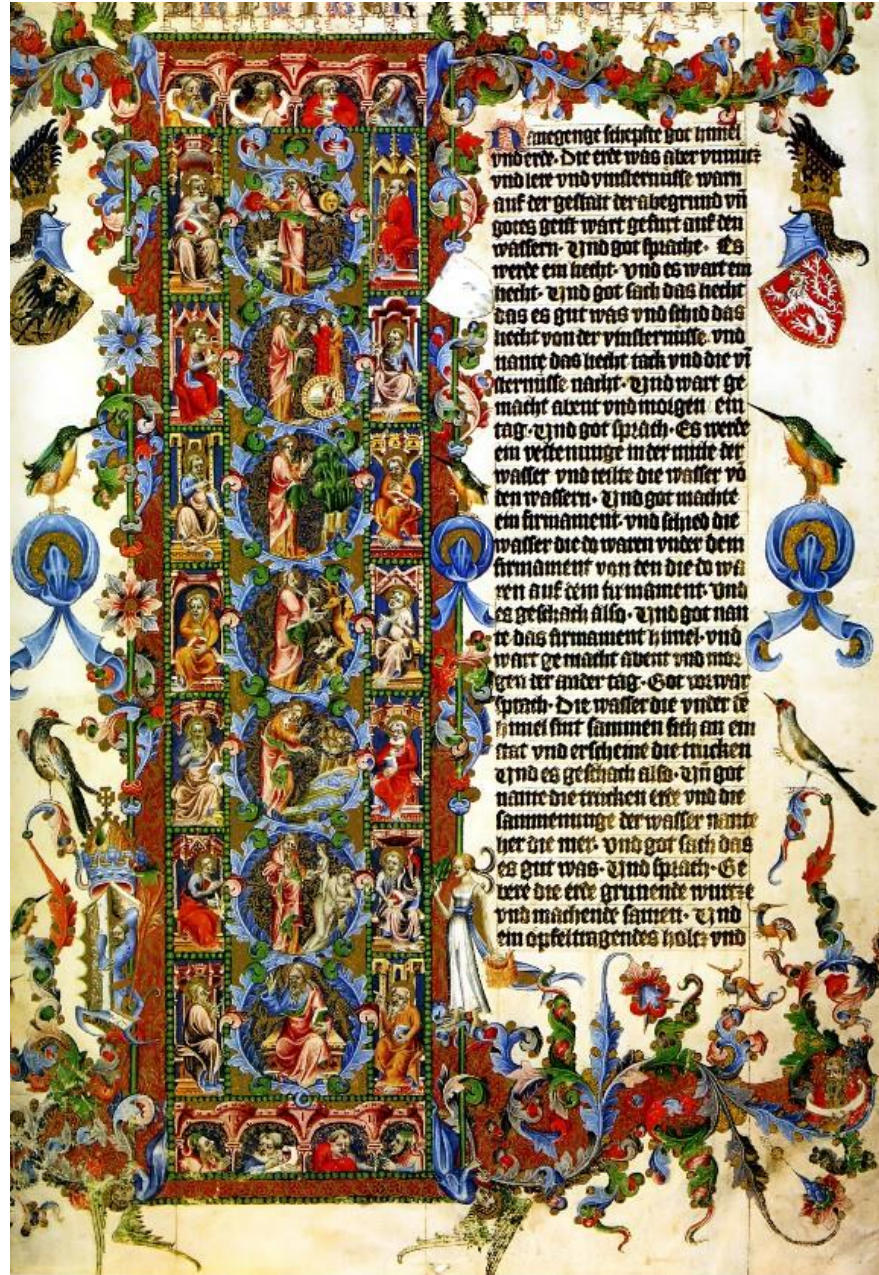 Namegenge schepfte got himel
vnd erde· Die erde was aber vnnutz
vnd lere vnd vinsternusse warn
auf der gestalt der abegrund vn̄
gotes geist wart gefurt auf den
wassern· Vnd got sprache· Es
werde ein liecht· vnd es wart ein
liecht· Vnd got sach das liecht
das es gut was vnd schid das
liecht von der vinsternusse· vnd
nante das liecht tack vnd die vī
sternusse nacht· Vnd wart ge
macht abent vnd morgen ein
tag· Vnd got sprach· Es werde
ein vestenunge in der mitte der
wasser vnd teilte die wasser vō
den wassern· Vnd got machte
ein firmament· vnd schied die
wasser die do waren vnder dem
firmament von den die do wa
ren auf dem firmament· Vnd
es geschach also· Vnd got nan
te das firmament himel· vnd
wart gemacht abent vnd mor
gen der ander tag· Got vorwar
sprach· Die wasser die vnder dē
himel sint sammen sich an ein
stat vnd erscheine die trucken
Vnd es geschach also· Vn̄ got
nante die trucken erde vnd die
sammenunge der wasser nante
her die mer· vnd got sach das
es gut was· Vnd sprach· Ge
bere die erde grunende wurtze
vnd machende samen· Vnd
ein opfeltragendes holtz vnd